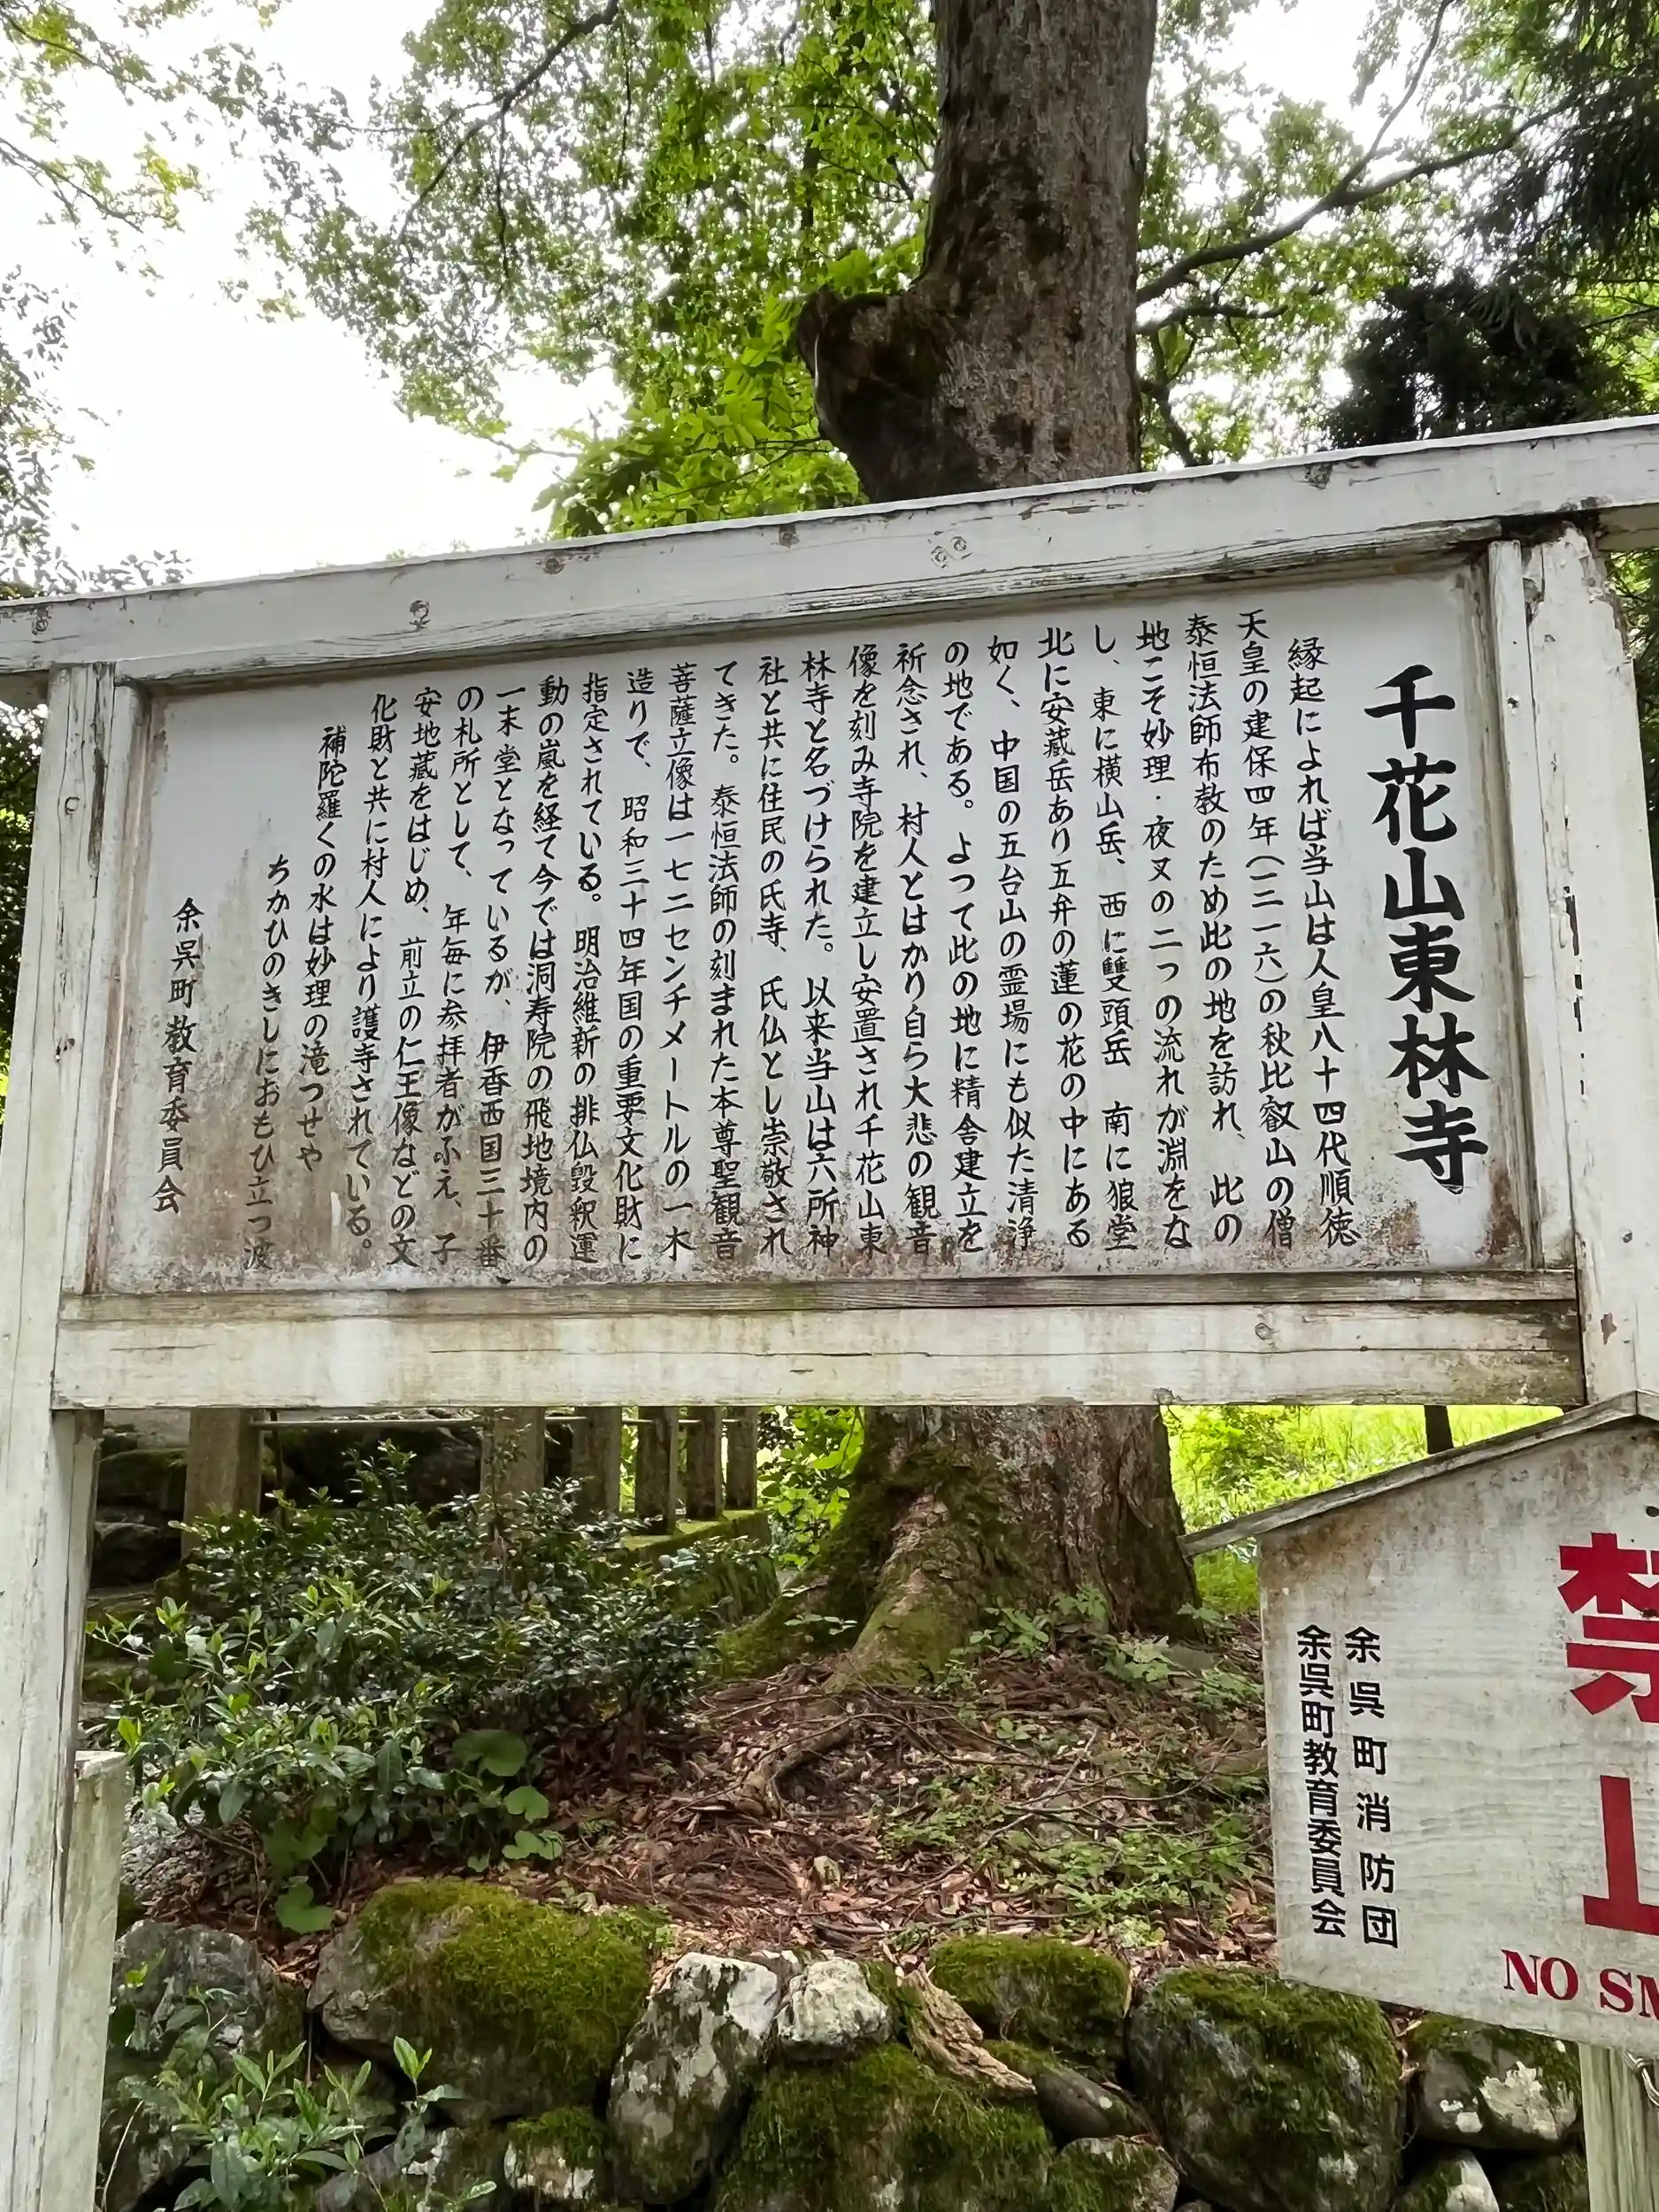 千花山東林寺
縁起によれば当山は人皇八十四代順徳
天皇の建保四年(一二一六)の秋比叡山の僧
泰恒法師布教のため此の地を訪れ、此の
地こそ妙理・夜叉の二つの流れが淵をな
し、東に横山岳、西に雙頭岳 南に狼堂
北に安蔵岳あり五弁の蓮の花の中にある
如く、中国の五台山の霊場にも似た清浄
の地である。よって此の地に精舎建立を
祈念され、村人とはかり自ら大悲の観音
像を刻み寺院を建立し安置され千花山東
林寺と名づけられた。以来当山は六所神
社と共に住民の氏寺、氏仏とし崇敬され
てきた。泰恒法師の刻まれた本尊聖観音
菩薩立像は一七二センチメートルの一木
造りで、昭和三十四年国の重要文化財に
指定されている。明治維新の排仏毀釈運
動の嵐を経て今では洞寿院の飛地境内の
一末堂となっているが、伊香西国三十番
の札所として、年毎に参拝者がふえ、子
安地蔵をはじめ、前立の仁王像などの文
化財と共に村人により護寺されている。
補陀羅くの水は妙理の滝つせや
ちかひのきしにおもひ立つ波
余呉町教育委員会
禁
余呉町消防団
余呉町教育委員会
NO SM